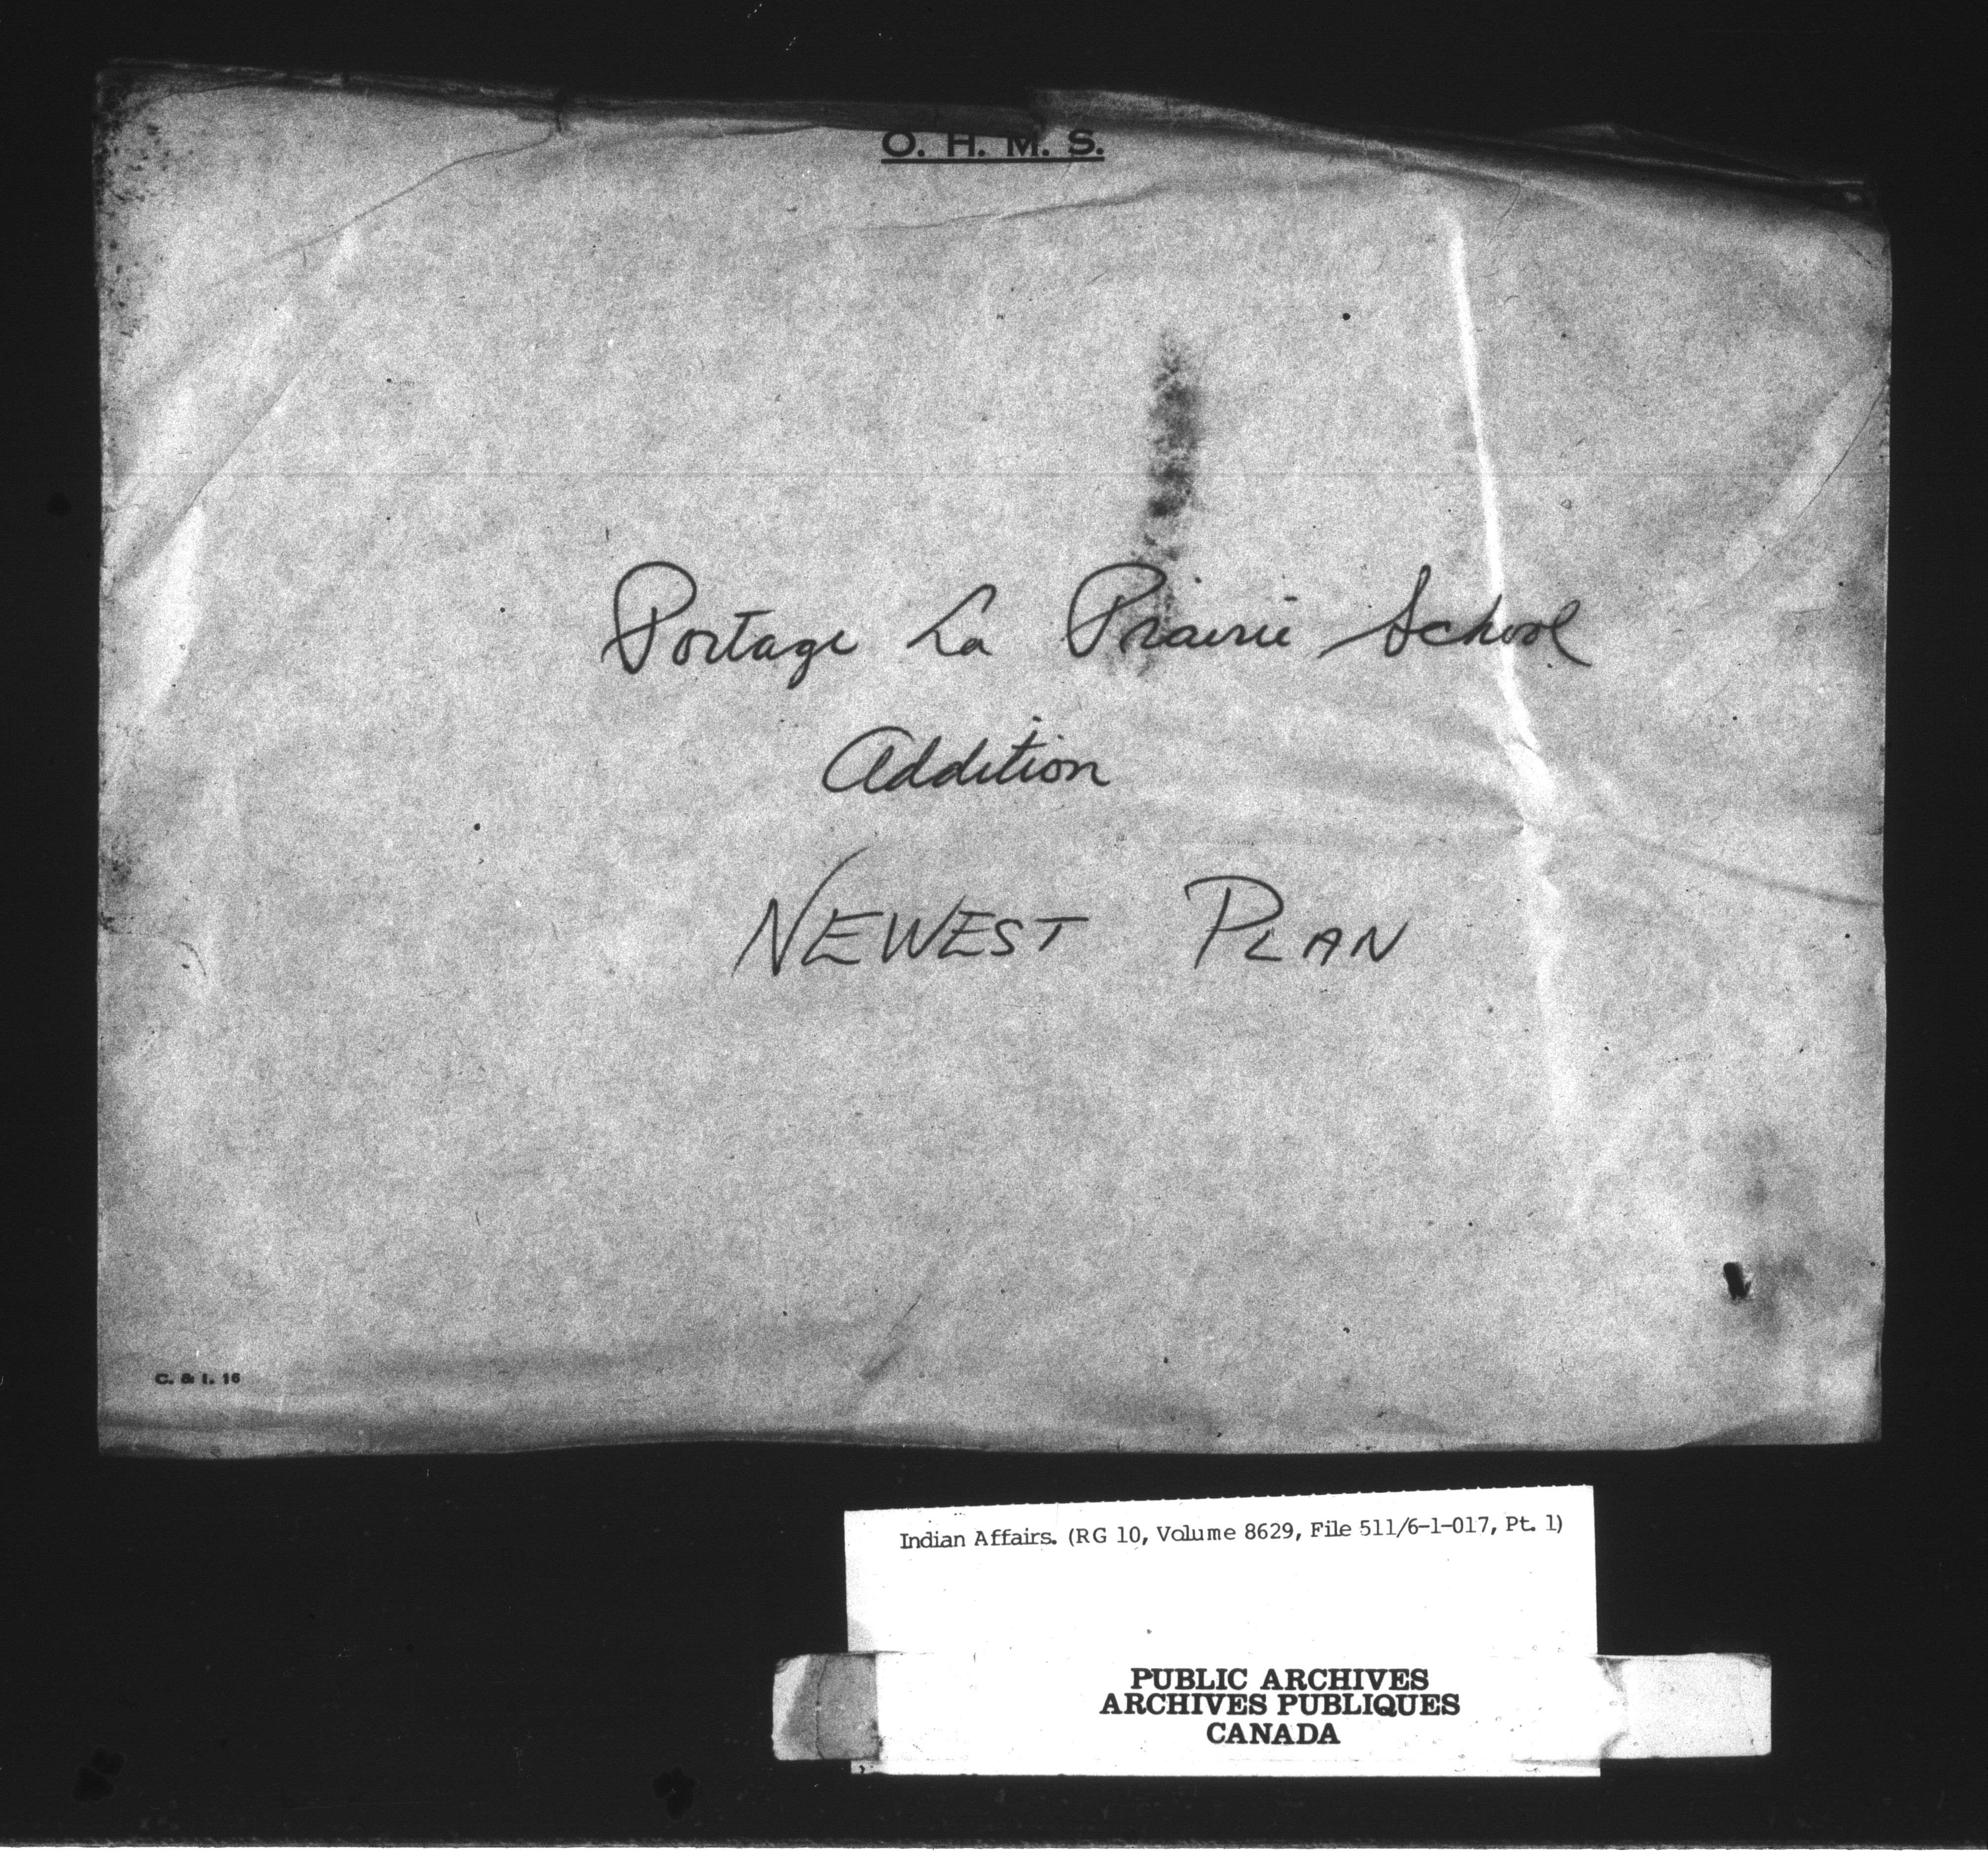 O. H. M. S.
Portage La Prairie School
Addition
NEWEST PLAN
C. & I. 16
Indian Affairs. (RG 10, Volume 8629, File 511/6-1-017, Pt. 1)
PUBLIC ARCHIVES
ARCHIVES PUBLIQUES
CANADA